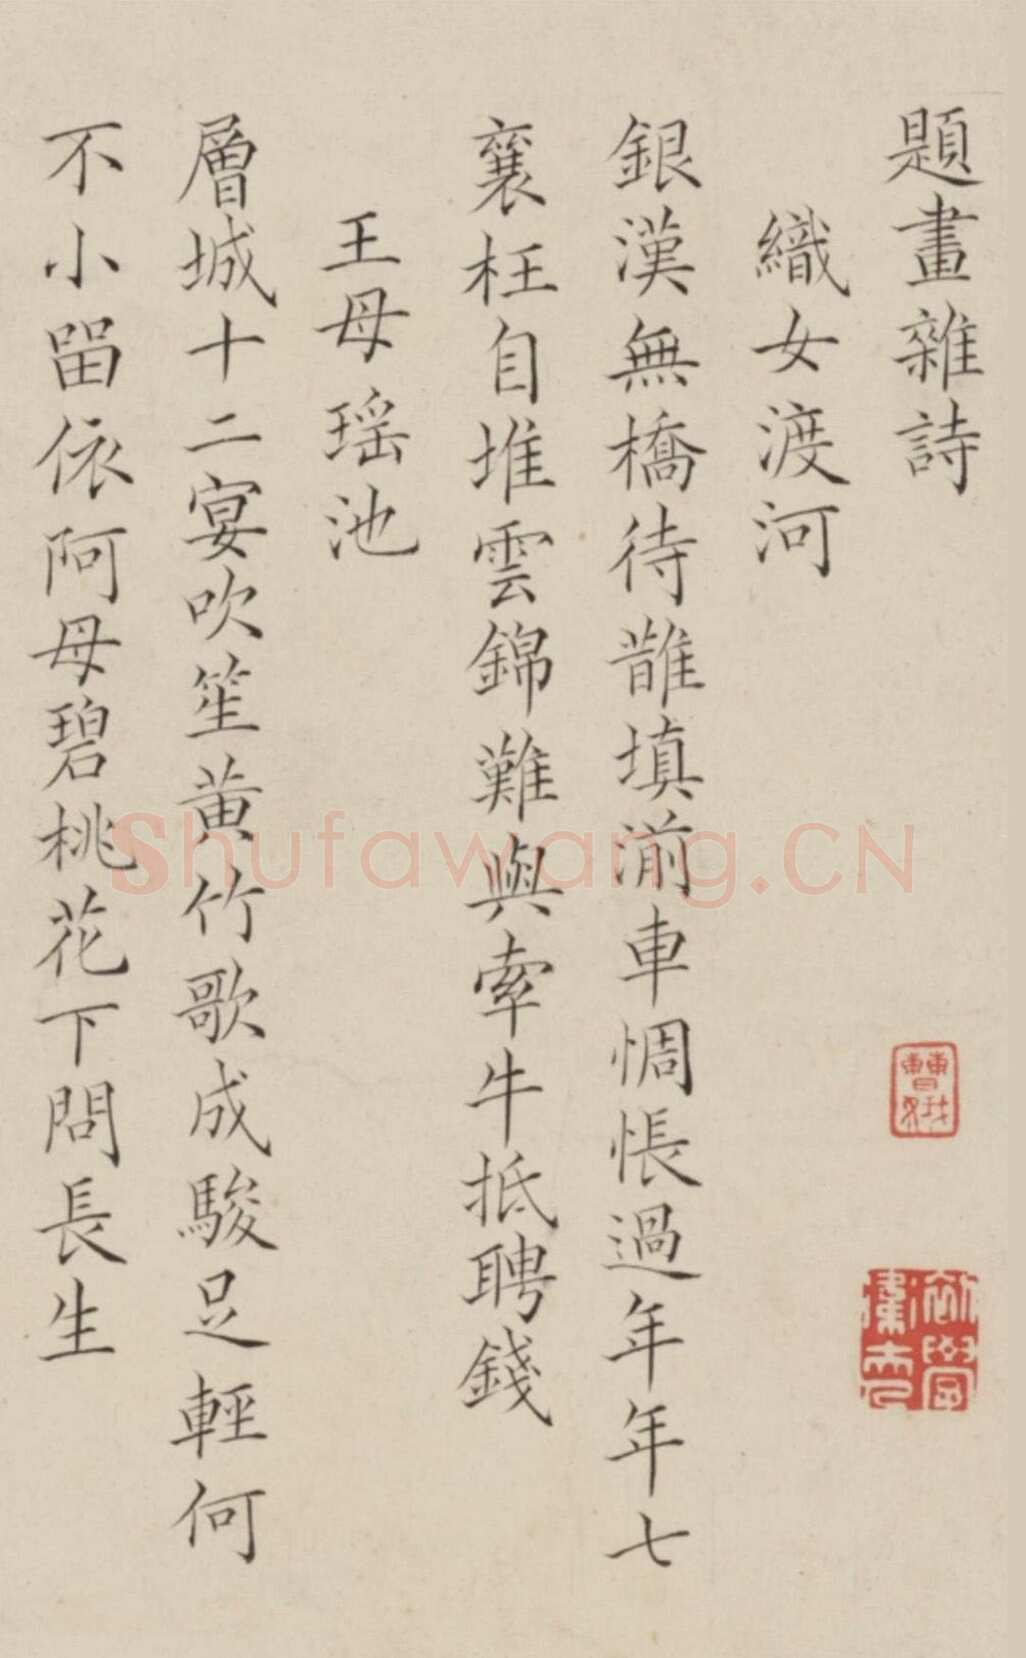 題畫雜詩
織女渡河
銀漢無橋待鵲填湔車惆悵過年年七
襄枉自堆雲錦難與牽牛抵聘錢
王母瑤池
層城十二宴吹笙黃竹歌成駿足輕何
不小留依阿母碧桃花下問長生
Shufawang.CN